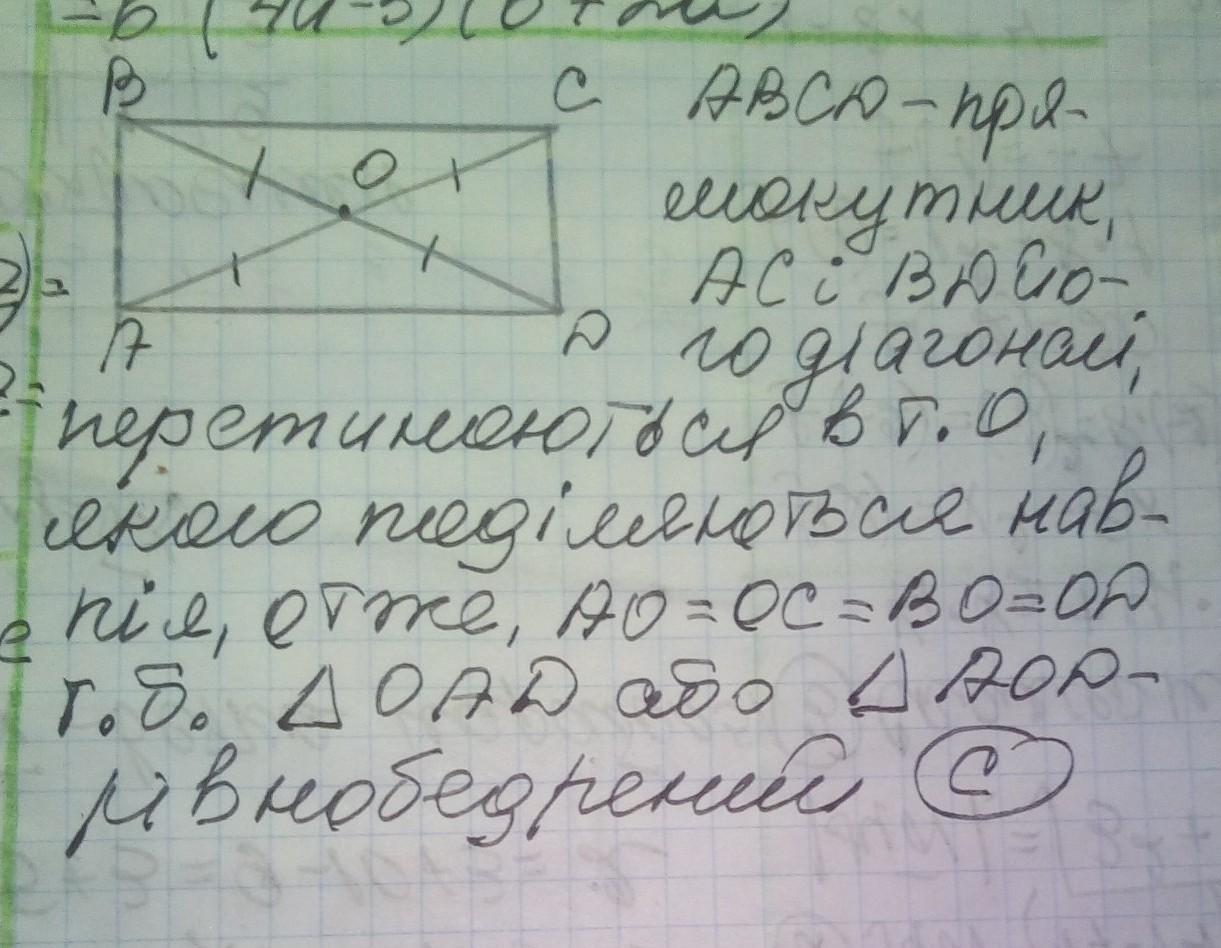 =b(4a-3)(b+2a)
B
C
ABCD - пря-
O
мокутник,
2)=
AC і BD йо-
A
D
го діагоналі,
2=
перетинаються в т. O,
якою поділяються нав-
піл, отже, AO=OC=BO=OD
е
т.б. △OAD або △AOD-
рівнобедрений C